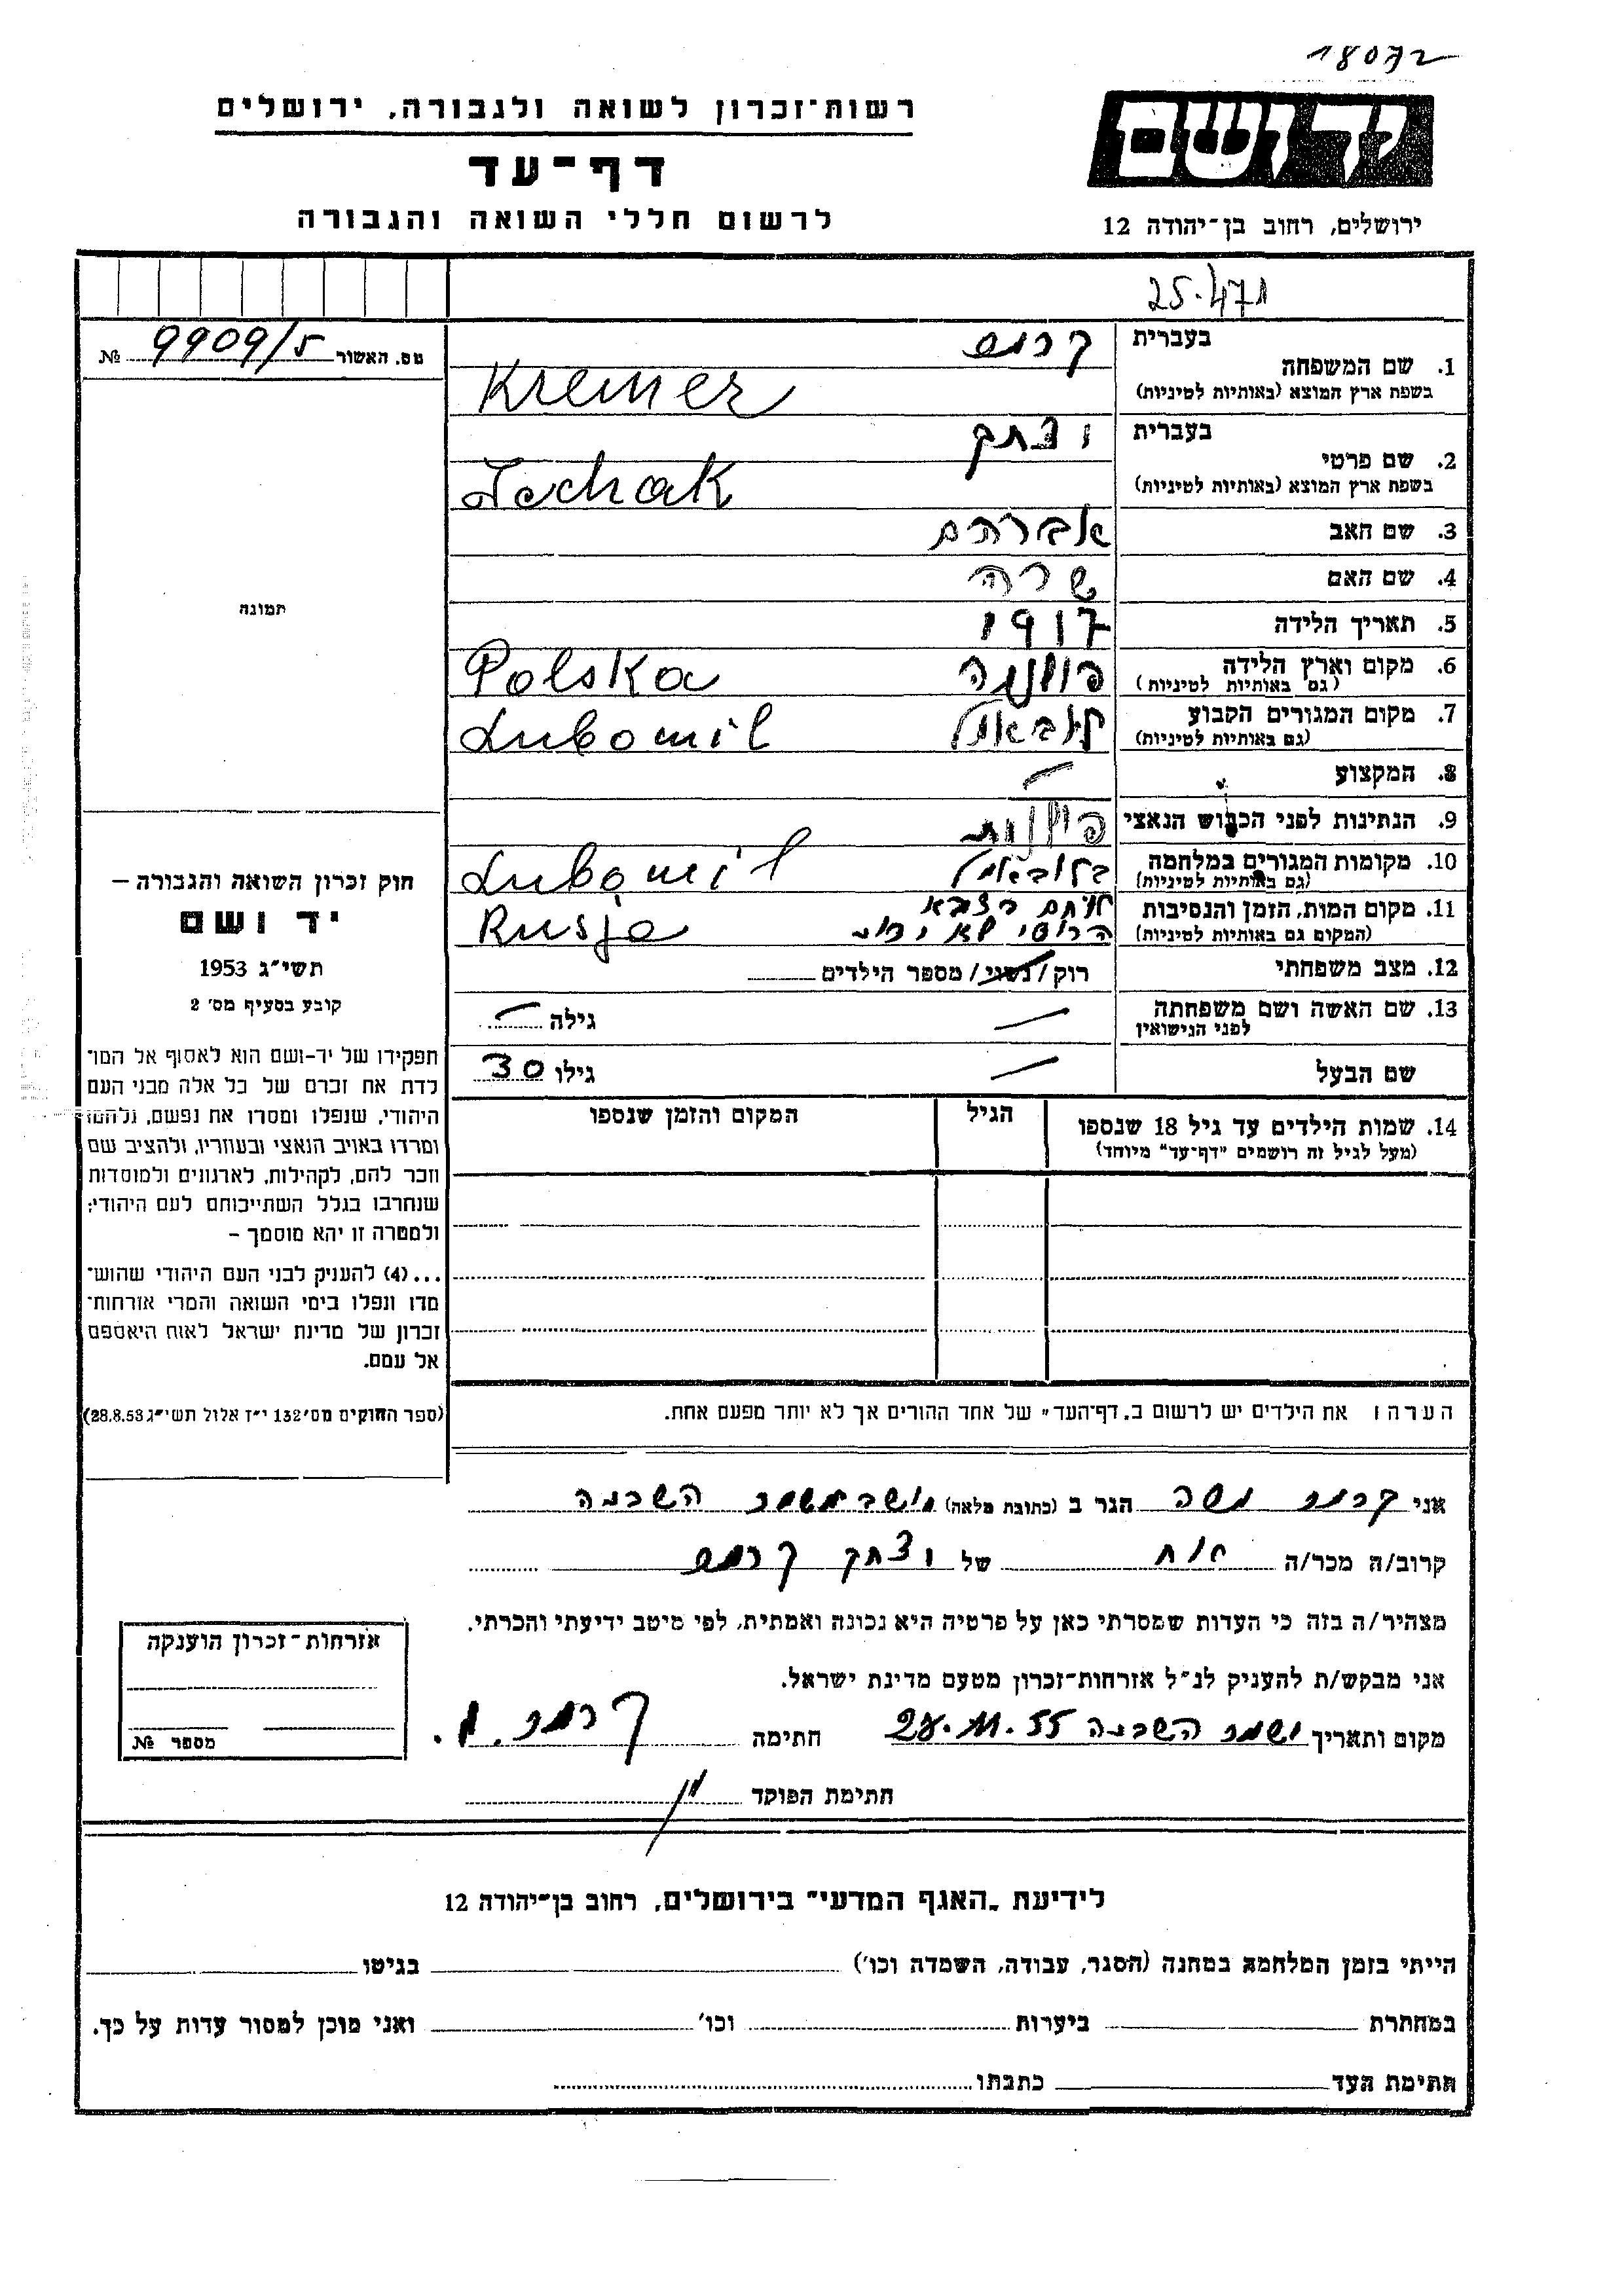 18072
רשות-זכרון לשואה ולגבורה, ירושלים
יד ושם
דף-עד
לרשום חללי השואה והגבורה
ירושלים, רחוב בן-יהודה 12
25.471
מס. האשור 9909/5 №
1. שם המשפחה
בעברית קרמר
בשפת ארץ המוצא (באותיות לטיניות) Kremer
2. שם פרטי
בעברית יצחק
בשפת ארץ המוצא (באותיות לטיניות) Icchak
3. שם האב אברהם
4. שם האם שרה
5. תאריך הלידה 1917
6. מקום וארץ הלידה פולניה Polska
(גם באותיות לטיניות)
7. מקום המגורים הקבוע לובאמיל Lubomil
(גם באותיות לטיניות)
8. המקצוע —
9. הנתינות לפני הכבוש הנאצי פולנית
10. מקומות המגורים במלחמה בלובאמיל Lubomil
(גם באותיות לטיניות)
11. מקום המות, הזמן והנסיבות לוחם בצבא
(המקום גם באותיות לטיניות) הרוסי Rusja
12. מצב משפחתי רוק/נשוי/מספר הילדים
13. שם האשה ושם משפחתה — גילה —
לפני הנישואין
שם הבעל — גילו 30
14. שמות הילדים עד גיל 18 שנספו הגיל המקום והזמן שנספו
(מעל לגיל זה רושמים "דף-עד" מיוחד)
תמונה
חוק זכרון השואה והגבורה –
יד ושם
תשי"ג 1953
קובע בסעיף מס' 2
תפקידו של יד-ושם הוא לאסוף אל המו־
לדת את זכרם של כל אלה מבני העם
היהודי, שנפלו ומסרו את נפשם, נלחמו
ומרדו באויב הנאצי ובעוזריו, ולהציב שם
וזכר להם, לקהילות, לארגונים ולמוסדות
שנחרבו בגלל השתייכותם לעם היהודי;
ולמטרה זו יהא מוסמך –
...(4) להעניק לבני העם היהודי שהוש־
מדו ונפלו בימי השואה והמרי אזרחות־
זכרון של מדינת ישראל לאות היאספם
אל עמם.
(ספר החוקים מס' 132 י"ז אלול תשי"ג 28.8.53)
הערה: את הילדים יש לרשום ב„דף-העד" של אחד ההורים אך לא יותר מפעם אחת.
אני קרמר משה הגר ב (כתובת מלאה) מושב משמר השבעה
קרוב/ה מכר/ה אח של יצחק קרמר
מצהיר/ה בזה כי העדות שמסרתי כאן על פרטיה היא נכונה ואמתית, לפי מיטב ידיעתי והכרתי.
אני מבקש/ת להעניק לנ"ל אזרחות-זכרון מטעם מדינת ישראל.
מקום ותאריך משמר השבעה 28.11.55 חתימה קרמר מ.
חתימת הפוקד
אזרחות-זכרון הוענקה
מספר №
לידיעת „האגף המדעי" בירושלים, רחוב בן-יהודה 12
הייתי בזמן המלחמה במחנה (הסגר, עבודה, השמדה וכו') בגיטו
במחתרת ביערות וכו' ואני מוכן למסור עדות על כך.
חתימת העד כתבתו